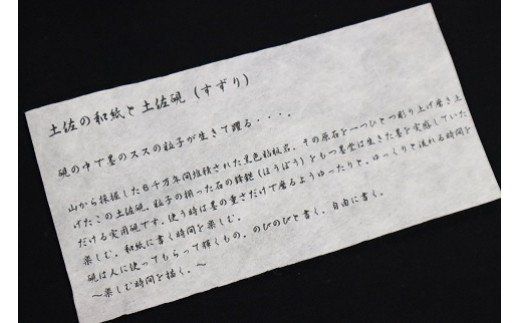 土佐の和紙と土佐硯（すずり）
硯の中で墨のススの粒子が生きて躍る・・・。
山から採掘した6千万年間堆積された黒色粘板岩。その原石を一つひとつ彫り上げ磨き上
げたこの土佐硯。粒子の揃った石の鋒鋩（ほうぼう）をもつ墨堂は生きた墨を実感していた
だける実用硯です。使う時は墨の重さだけで磨るようゆったりと。ゆっくりと流れる時間を
楽しむ。和紙に書く時間を楽しむ。
硯は人に使ってもらって輝くもの。のびのびと書く。自由に書く。
〜楽しむ時間を描く。〜